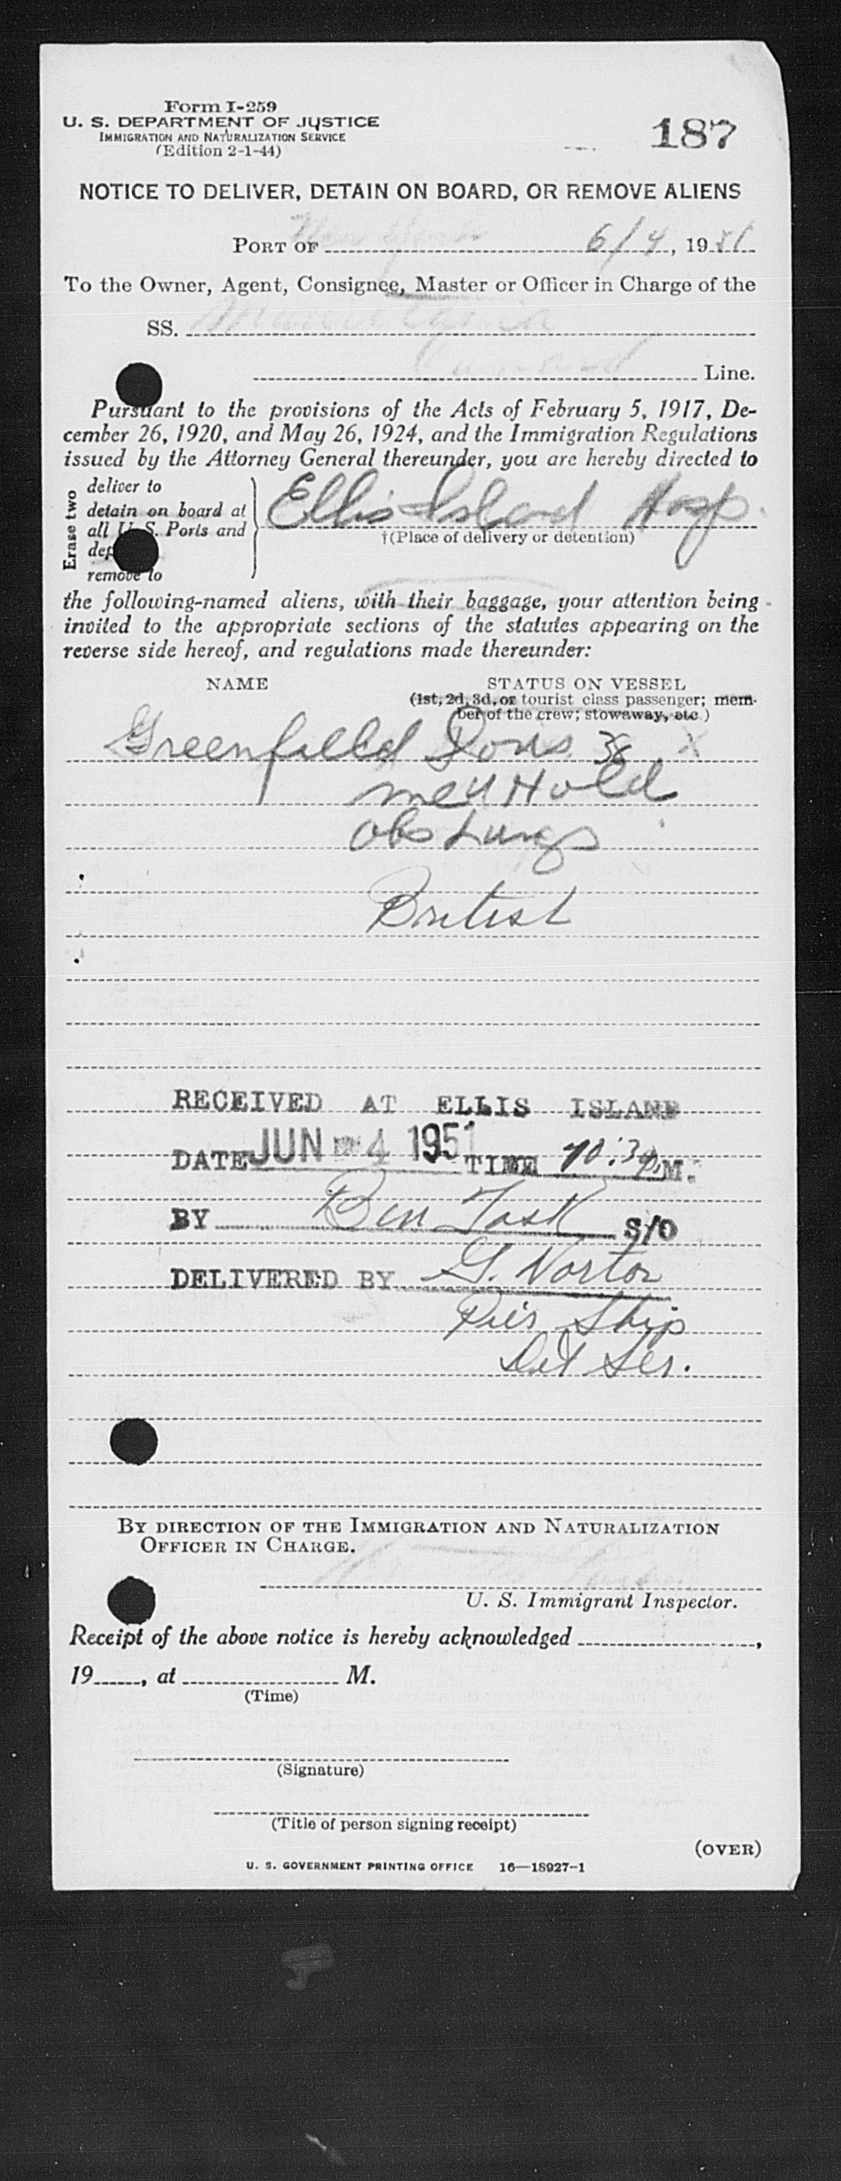 Form I-259
U. S. DEPARTMENT OF JUSTICE
IMMIGRATION AND NATURALIZATION SERVICE
(Edition 2-1-44)
187
NOTICE TO DELIVER, DETAIN ON BOARD, OR REMOVE ALIENS
PORT OF New York 6/4, 1951
To the Owner, Agent, Consignee, Master or Officer in Charge of the
SS. Mauretania
Cunard Line.
Pursuant to the provisions of the Acts of February 5, 1917, De-
cember 26, 1920, and May 26, 1924, and the Immigration Regulations
issued by the Attorney General thereunder, you are hereby directed to
Erase two
deliver to
detain on board at
all U. S. Ports and
remove to
Ellis Island Hosp.
†(Place of delivery or detention)
the following-named aliens, with their baggage, your attention being
invited to the appropriate sections of the statutes appearing on the
reverse side hereof, and regulations made thereunder:
NAME STATUS ON VESSEL
(1st, 2d, 3d, or tourist class passenger; mem-
ber of the crew; stowaway, etc.)
Greenfield Doris 38 X
Med Hold
obs Lungs
British
RECEIVED AT ELLIS ISLAND
DATE JUN 4 1951 TIME 10:30 P.M.
BY Ben Task S/O
DELIVERED BY G. Norton
Pier Ship
Det Ser.
BY DIRECTION OF THE IMMIGRATION AND NATURALIZATION
OFFICER IN CHARGE.
U. S. Immigrant Inspector.
Receipt of the above notice is hereby acknowledged ,
19 , at M.
(Time)
(Signature)
(Title of person signing receipt)
(OVER)
U. S. GOVERNMENT PRINTING OFFICE 16—18927-1